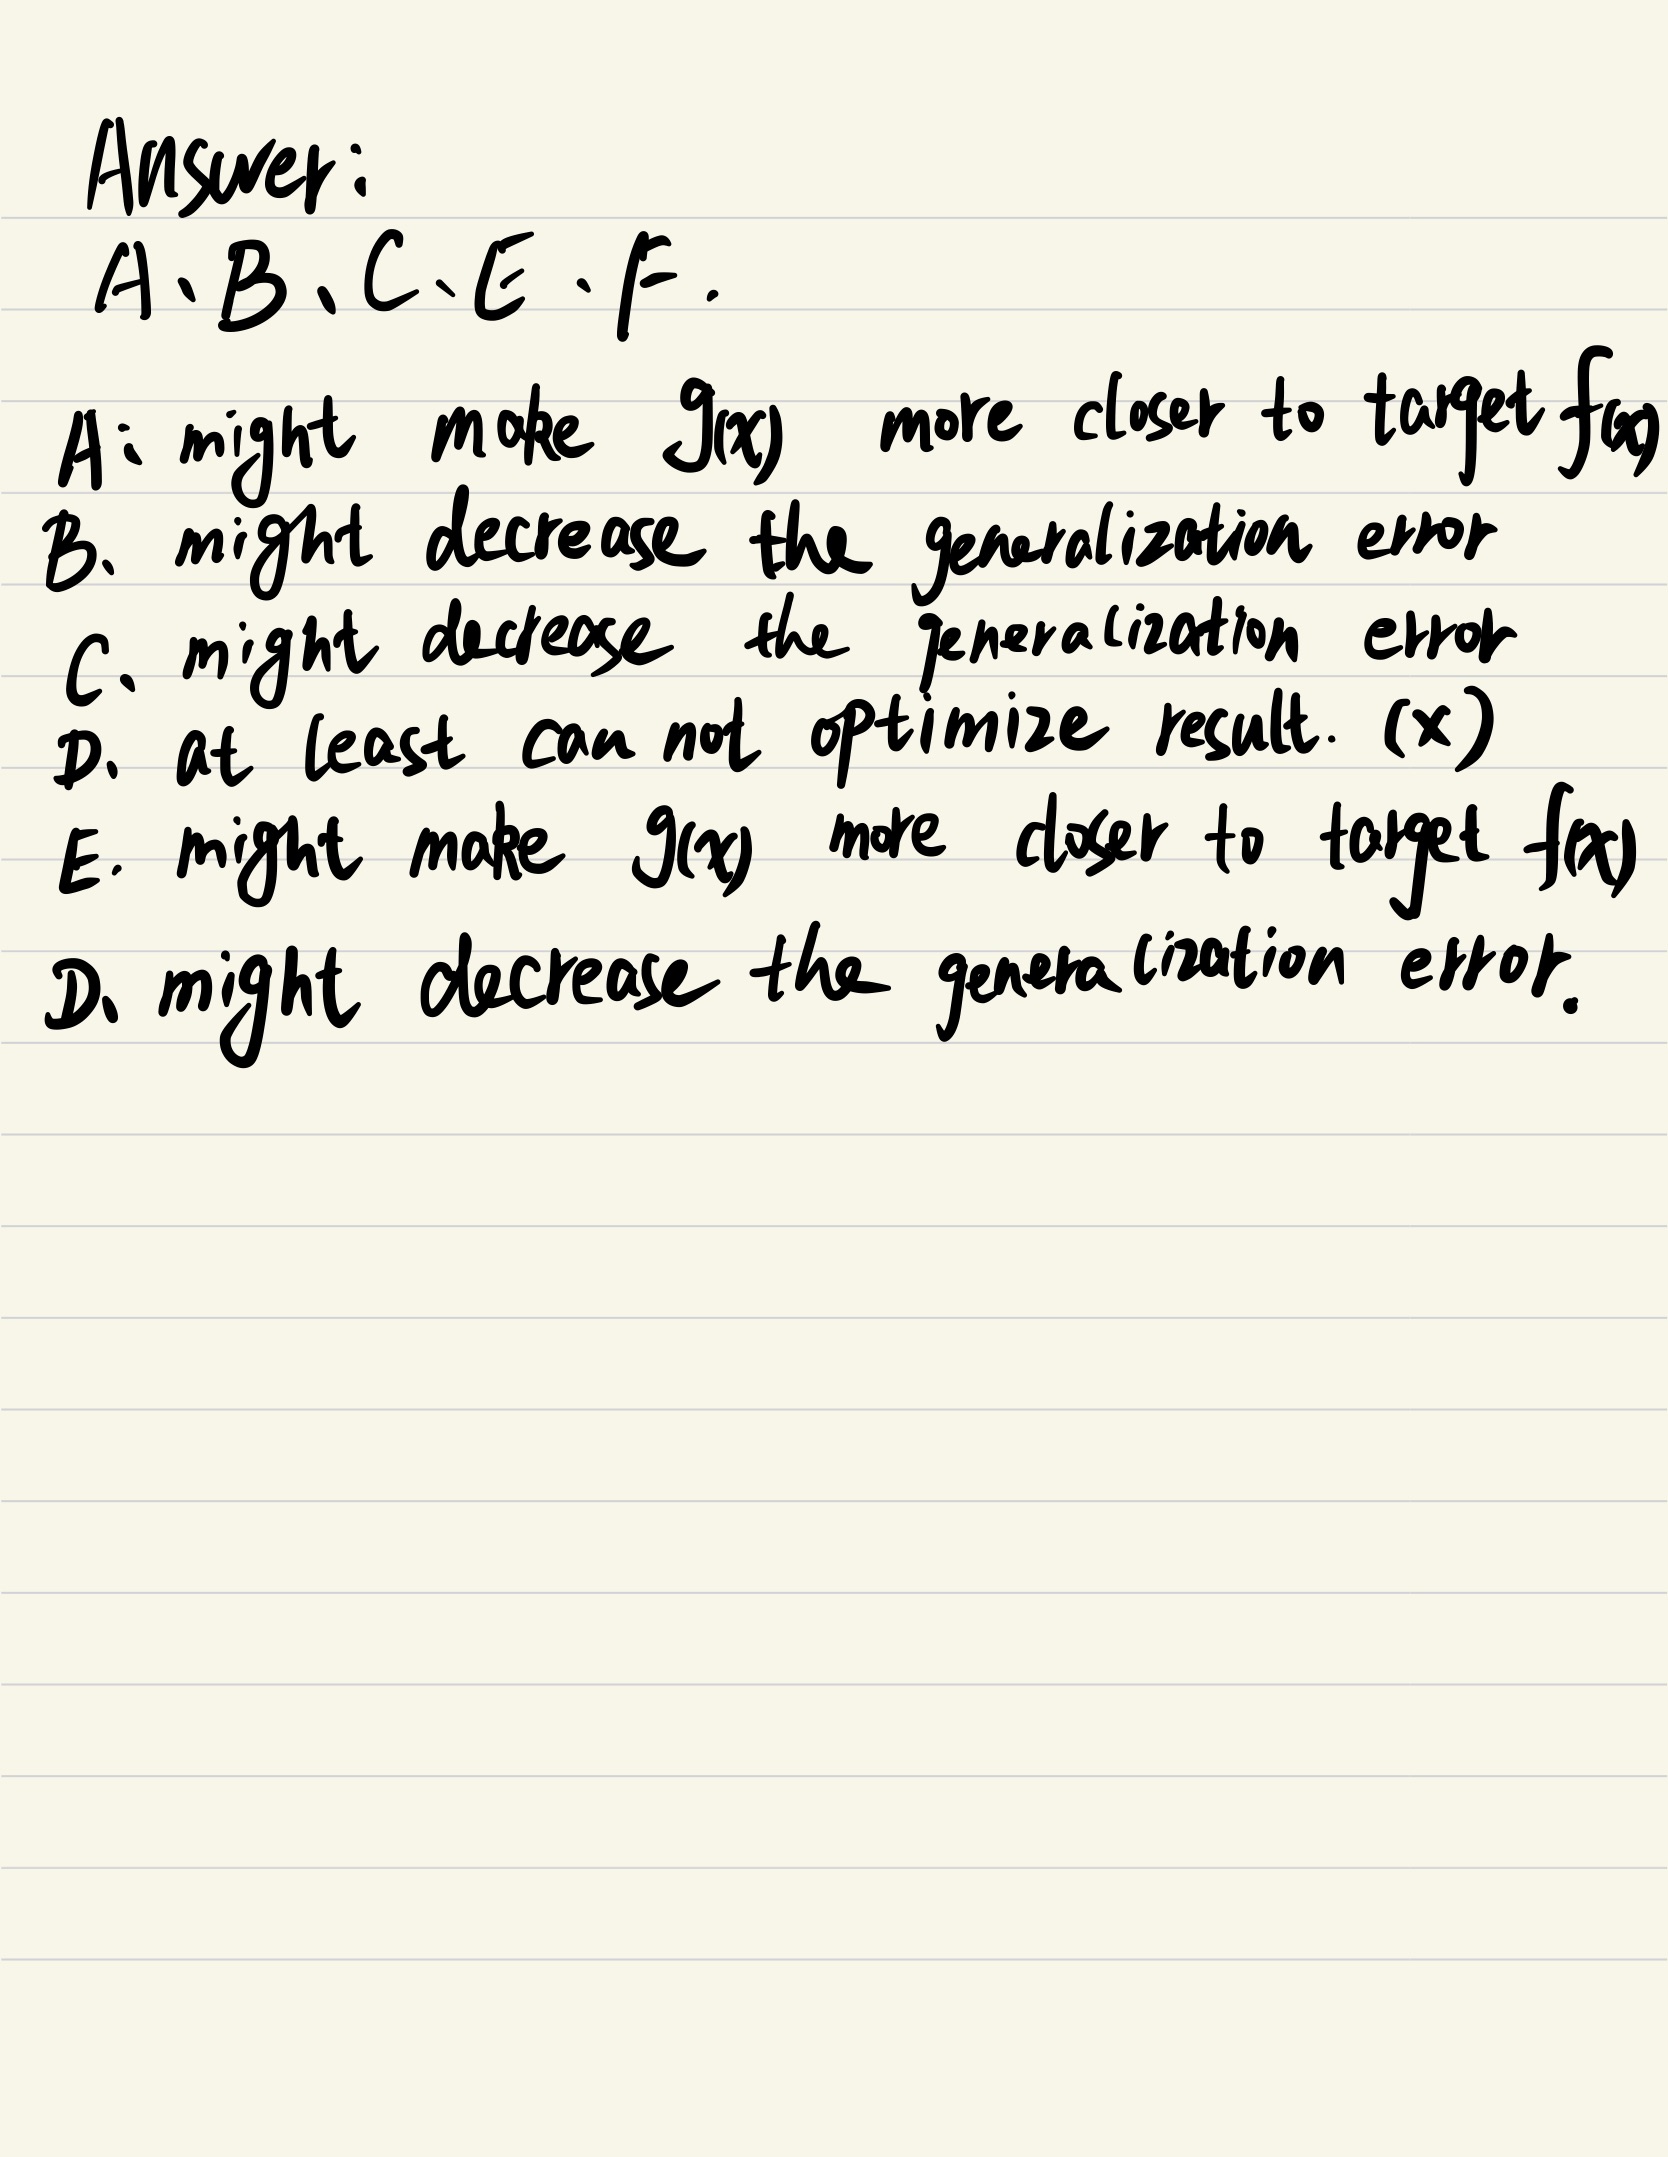 Answer:
A、B、C、E、F.
A: might make g(x) more closer to target f(x)
B、 might decrease the generalization error
C、 might decrease the generalization error
D、 at least can not optimize result. (x)
E. might make g(x) more closer to target f(x)
D、 might decrease the generalization error.